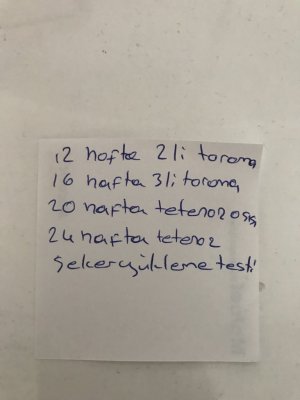 12 hafta 2li tarama
16 hafta 3li tarama
20 hafta tetenoz aşısı
24 hafta tetenoz
Şeker yükleme testi